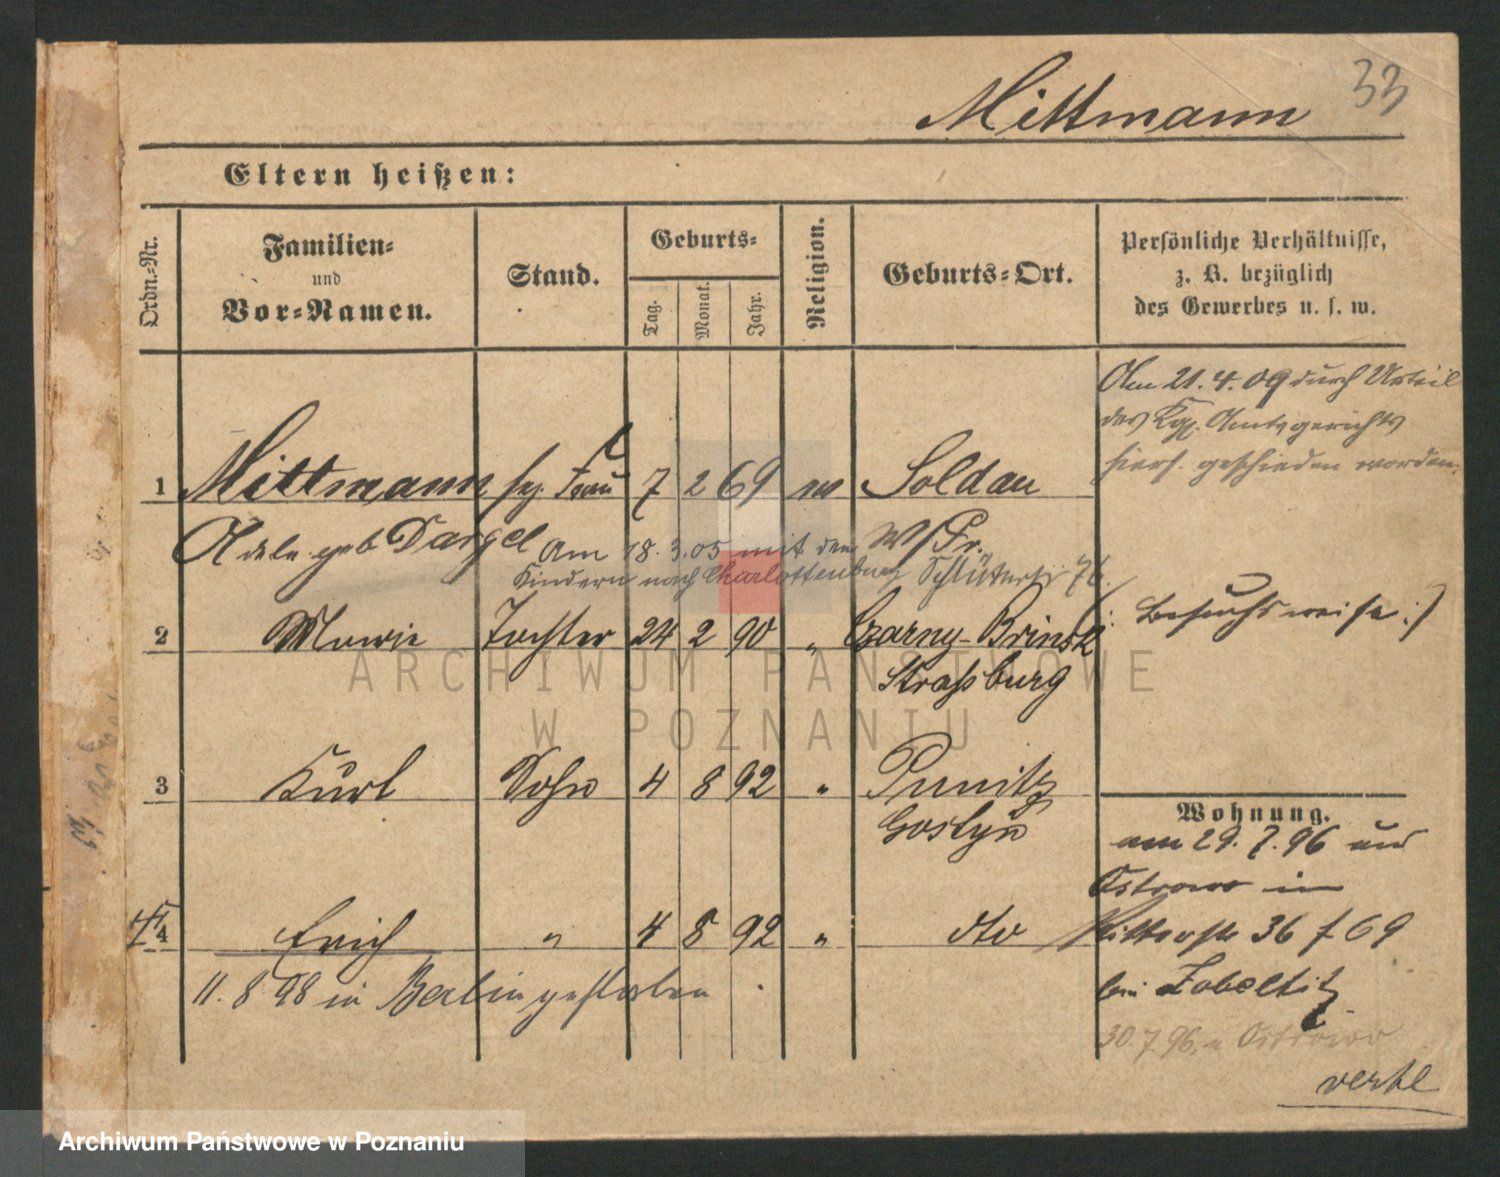 33
Mittmann
Eltern heißen:
Ordn.-Nr.
Familien-
und
Vor-Namen.
Stand.
Geburts-
Tag.
Monat.
Jahr.
Religion.
Geburts-Ort.
Persönliche Verhältnisse,
z. B. bezüglich
des Gewerbes u. s. w.
Am 21.4.09 durch Urteil
des Kgl. Amtsgerichts
hiers. geschieden worden.
1 Mittmann Frau 7 2 69 Soldau
Adele geb Dargel W/Pr.
Am 18.3.05 mit den
Kindern nach Charlottenburg Schlüterstr 76.
(: Besuchsweise :)
2 Marie Tochter 24 2 90 " Czarny-Brinsk
Straßburg
3 Kurt Sohn 4 8 92 " Punitz
Gostyn
Wohnung.
am 29.7.96 aus
Ostrowo in
4 Erich " 4 8 92 " dto Ritterstr 36
bei Zobeltitz
11.8.98 in Berlin gestorben
30.7.96. Ostrowo
verhl
ARCHIWUM PAŃSTWOWE
W POZNANIU
Archiwum Państwowe w Poznaniu